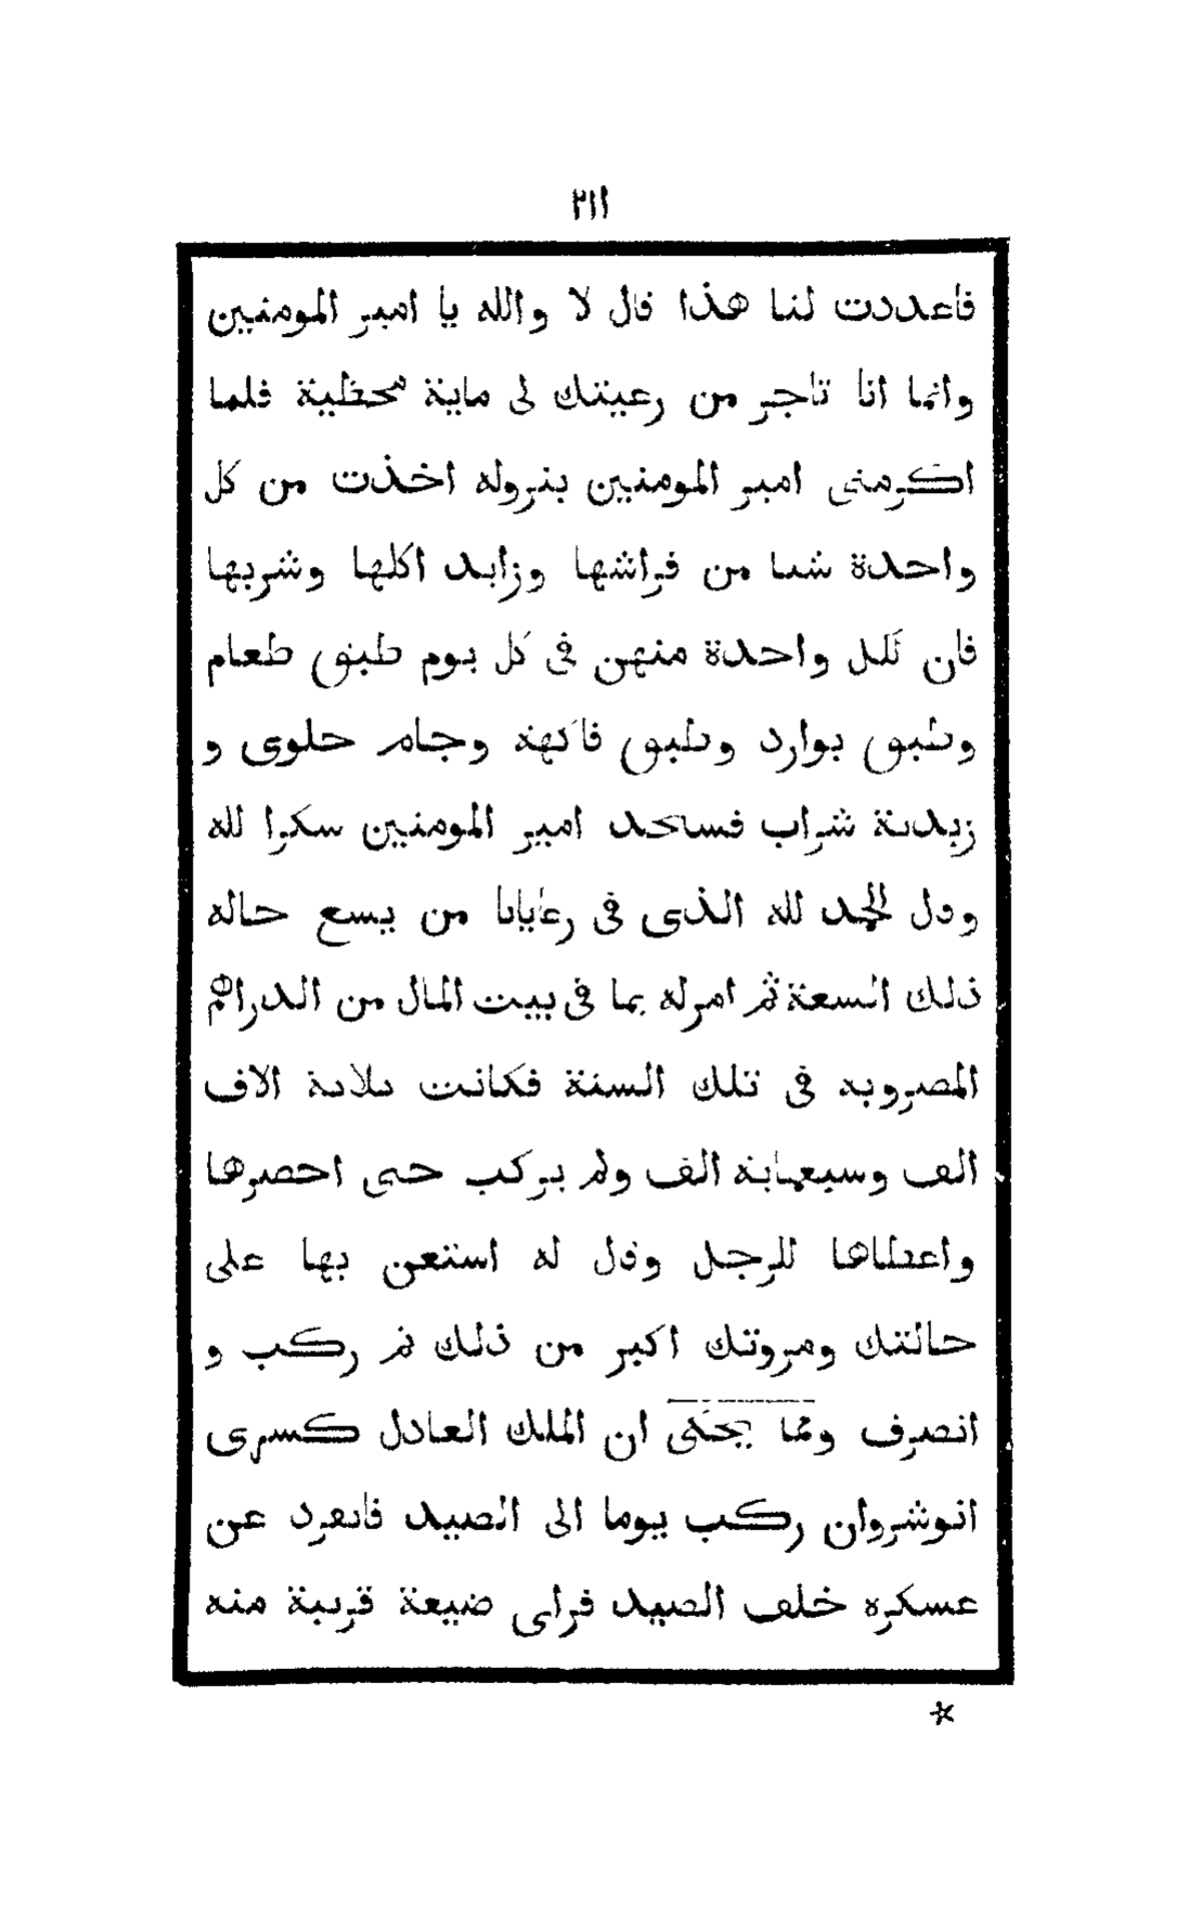 ٢١١
فاعددت لنا هذا قال لا والله يا امير المومنين
وانما انا تاجر من رعيتك لى ماية محظية فلما
اكرمنى امير المومنين بنزوله اخذت من كل
واحدة شيا من فراشها وزايد اكلها وشربها
فان لكل واحدة منهن فى كل يوم طبق طعام
وطبق بوارد وطبق فاكهة وجام حلوى و
زبدية شراب فسجد امير المومنين شكرا لله
وقال الحمد لله الذى فى رعايانا من يسع حاله
ذلك السعة ثم امر له بما فى بيت المال من الدراهم
المضروبة فى تلك السنة فكانت ثلاثة الاف
الف وسبعماية الف ولم يركب حتى احضرها
واعطاها للرجل وقال له استعن بها على
حالتك ومروتك اكبر من ذلك ثم ركب و
انصرف ومما يحكى ان الملك العادل كسرى
انوشروان ركب يوما الى الصيد فانفرد عن
عسكره خلف الصيد فراى ضيعة قريبة منه
*